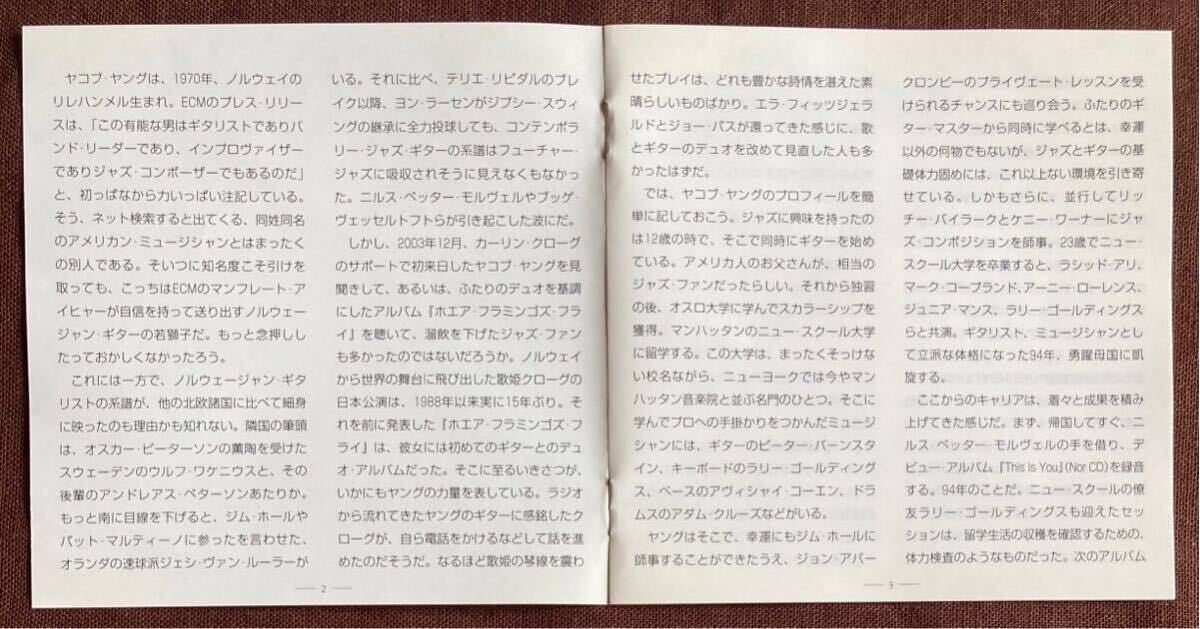 ヤコブ・ヤングは、1970年、ノルウェイの
リレハンメル生まれ。ECMのプレス・リリー
スは、「この有能な男はギタリストでありバ
ンド・リーダーであり、インプロヴァイザー
でありジャズ・コンポーザーでもあるのだ」
と、初っぱなから力いっぱい注記している。
そう、ネット検索すると出てくる、同姓同名
のアメリカン・ミュージシャンとはまったく
の別人である。そいつに知名度こそ引けを
取っても、こっちはECMのマンフレート・ア
イヒャーが自信を持って送り出すノルウェー
ジャン・ギターの若獅子だ。もっと念押しし
たっておかしくなかったろう。
これには一方で、ノルウェージャン・ギタ
リストの系譜が、他の北欧諸国に比べて細身
に映ったのも理由かも知れない。隣国の筆頭
は、オスカー・ピーターソンの薫陶を受けた
スウェーデンのウルフ・ワケニウスと、その
後輩のアンドレアス・ペターソンあたりか。
もっと南に目線を下げると、ジム・ホールや
パット・マルティーノに参ったを言わせた、
オランダの速球派ジェシ・ヴァン・ルーラーが
いる。それに比べ、テリエ・リピダルのブレ
イク以降、ヨン・ラーセンがジプシー・スウィ
ングの継承に全力投球しても、コンテンポラ
リー・ジャズ・ギターの系譜はフューチャー・
ジャズに吸収されそうに見えなくもなかっ
た。ニルス・ペッター・モルヴェルやブッゲ・
ヴェッセルトフトらが引き起こした波にだ。
しかし、2003年12月、カーリン・クローグ
のサポートで初来日したヤコブ・ヤングを見
聞きして、あるいは、ふたりのデュオを基調
にしたアルバム『ホエア・フラミンゴズ・フラ
イ』を聴いて、溜飲を下げたジャズ・ファン
も多かったのではないだろうか。ノルウェイ
から世界の舞台に飛び出した歌姫クローグの
日本公演は、1988年以来実に15年ぶり。そ
れを前に発表した『ホエア・フラミンゴズ・フ
ライ』は、彼女には初めてのギターとのデュ
オ・アルバムだった。そこに至るいきさつが、
いかにもヤングの力量を表している。ラジオ
から流れてきたヤングのギターに感銘したク
ローグが、自ら電話をかけるなどして話を進
めたのだそうだ。なるほど歌姫の琴線を震わ
— 2 —
せたプレイは、どれも豊かな詩情を湛えた素
晴らしいものばかり。エラ・フィッツジェラ
ルドとジョー・パスが還ってきた感じに、歌
とギターのデュオを改めて見直した人も多
かったはずだ。
では、ヤコブ・ヤングのプロフィールを簡
単に記しておこう。ジャズに興味を持ったの
は12歳の時で、そこで同時にギターを始め
ている。アメリカ人のお父さんが、相当の
ジャズ・ファンだったらしい。それから独習
の後、オスロ大学に学んでスカラーシップを
獲得。マンハッタンのニュー・スクール大学
に留学する。この大学は、まったくそっけな
い校名ながら、ニューヨークでは今やマン
ハッタン音楽院と並ぶ名門のひとつ。そこに
学んでプロへの手掛かりをつかんだミュージ
シャンには、ギターのピーター・バーンスタ
イン、キーボードのラリー・ゴールディング
ス、ベースのアヴィシャイ・コーエン、ドラ
ムスのアダム・クルーズなどがいる。
ヤングはそこで、幸運にもジム・ホールに
師事することができたうえ、ジョン・アバー
クロンビーのプライヴェート・レッスンを受
けられるチャンスにも巡り会う。ふたりのギ
ター・マスターから同時に学べるとは、幸運
以外の何物でもないが、ジャズとギターの基
礎体力固めには、これ以上ない環境を引き寄
せている。しかもさらに、並行してリッ
チー・バイラークとケニー・ワーナーにジャ
ズ・コンポジションを師事。23歳でニュー・
スクール大学を卒業すると、ラシッド・アリ、
マーク・コープランド、アーニー・ローレンス、
ジュニア・マンス、ラリー・ゴールディングス
らと共演。ギタリスト、ミュージシャンとし
て立派な体格になった94年、勇躍母国に凱
旋する。
ここからのキャリアは、着々と成果を積み
上げてきた感じだ。まず、帰国してすぐ、ニ
ルス・ペッター・モルヴェルの手を借り、デ
ビュー・アルバム『This Is You』(Nor CD)を録音
する。94年のことだ。ニュー・スクールの僚
友ラリー・ゴールディングスも迎えたセッ
ションは、留学生活の収穫を確認するための、
体力検査のようなものだった。次のアルバム
— 3 —